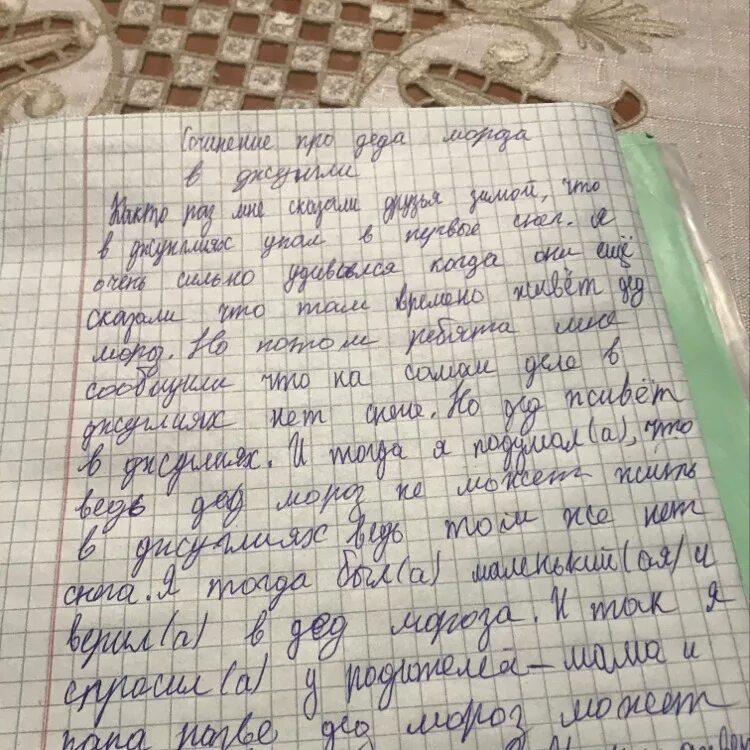 Сочинение про деда мороза
в джунгли
Както раз мне сказали друзья зимой, что
в джунглиях упал в первые снег. Я
очень сильно удивоялся когда они ещё
сказали что там времено живёт дед
мороз. Но потом ребята мне
сообщили что на самам деле в
джуглиях нет снега. Но дед живёт
в джуглиях. И тогда я подумал(а), что
ведь дед мороз не может жить
в джуглиях ведь том же нет
снега. Я тогда был(а) маленький(ая) и
верил(а) в дед мороза. И так я
спросил(а) у родителей - мама и
папа разве дед мороз может